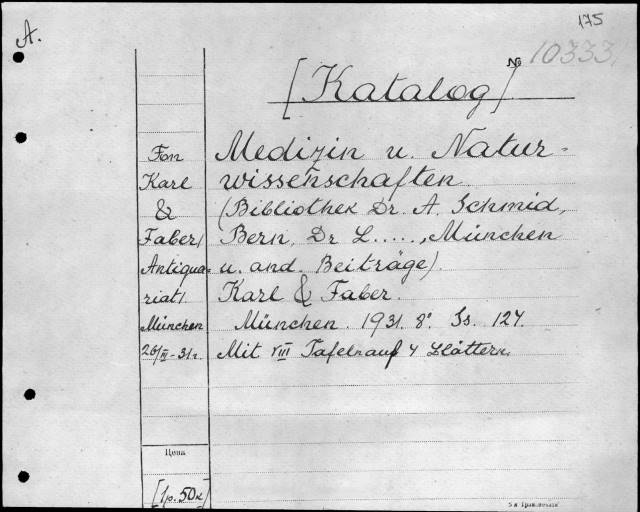 A.
175
№ 10333
[Katalog]
Medizin u. Natur-
wissenschaften
(Bibliothek Dr. A. Schmid,
Bern, Dr L....., München
u. and. Beiträge).
Karl & Faber.
München. 1931. 8°. Ss. 127.
Mit VIII Tafeln auf 4 Blättern.
Fon
Karl
&
Faber/
Antiqua-
riat/.
München
26/II-31г.
Цена
[1р. 50к]